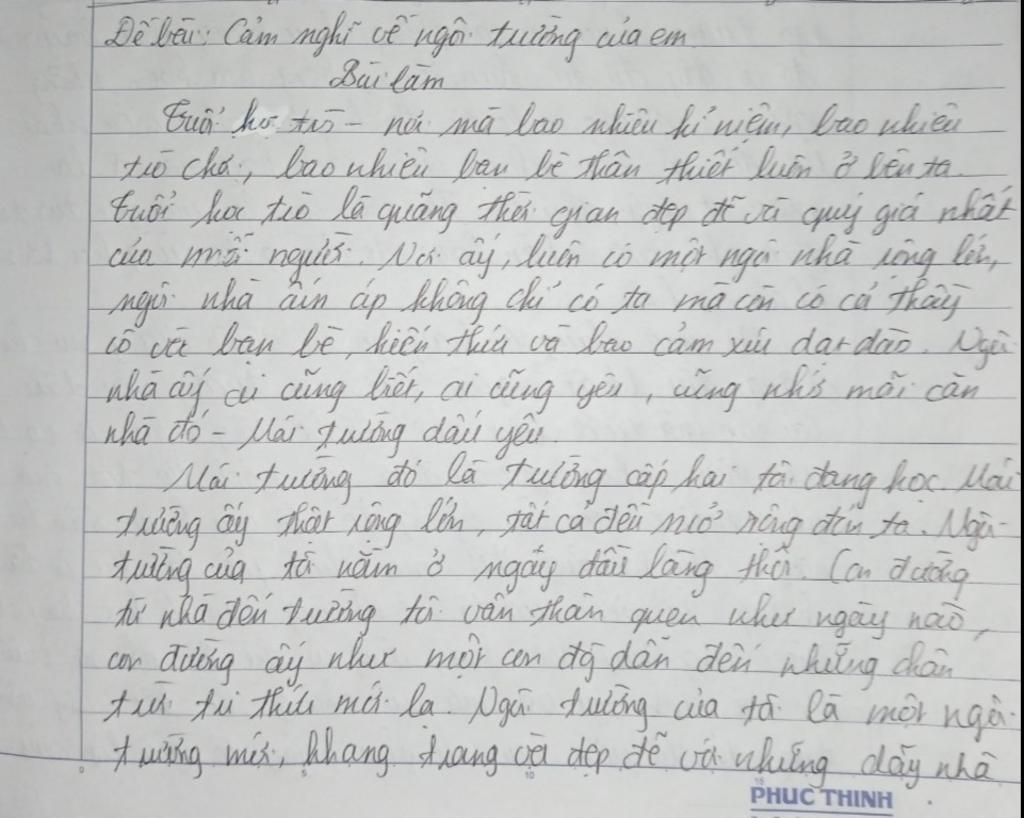 Đề bài: Cảm nghĩ về ngôi trường của em.
Bài làm
Tuổi học trò - nơi mà bao nhiêu kỉ niệm, bao nhiêu
trò chơi, bao nhiêu bạn bè thân thiết luôn ở bên ta.
Tuổi học trò là quãng thời gian đẹp đẽ và quý giá nhất
của mỗi người. Nơi ấy, luôn có một ngôi nhà rộng lớn,
ngôi nhà ấm áp không chỉ có ta mà còn có cả thầy
cô và bạn bè, kiến thức và bao cảm xúc dạt dào. Ngôi
nhà ấy ai cũng biết, ai cũng yêu, cũng nhớ mãi căn
nhà đó - Mái trường dấu yêu.
Mái trường đó là trường cấp hai tôi đang học. Mái
trường ấy thật rộng lớn, tất cả đều mở rộng đón ta. Ngôi
trường của tôi nằm ở ngay đầu làng thôi. Con đường
từ nhà đến trường tôi vẫn thân quen như ngày nào,
con đường ấy như một con đg dẫn đến những chân
trời tri thức mới lạ. Ngôi trường của tôi là một ngôi
trường mới, khang trang và đẹp đẽ với những dãy nhà
PHUC THINH